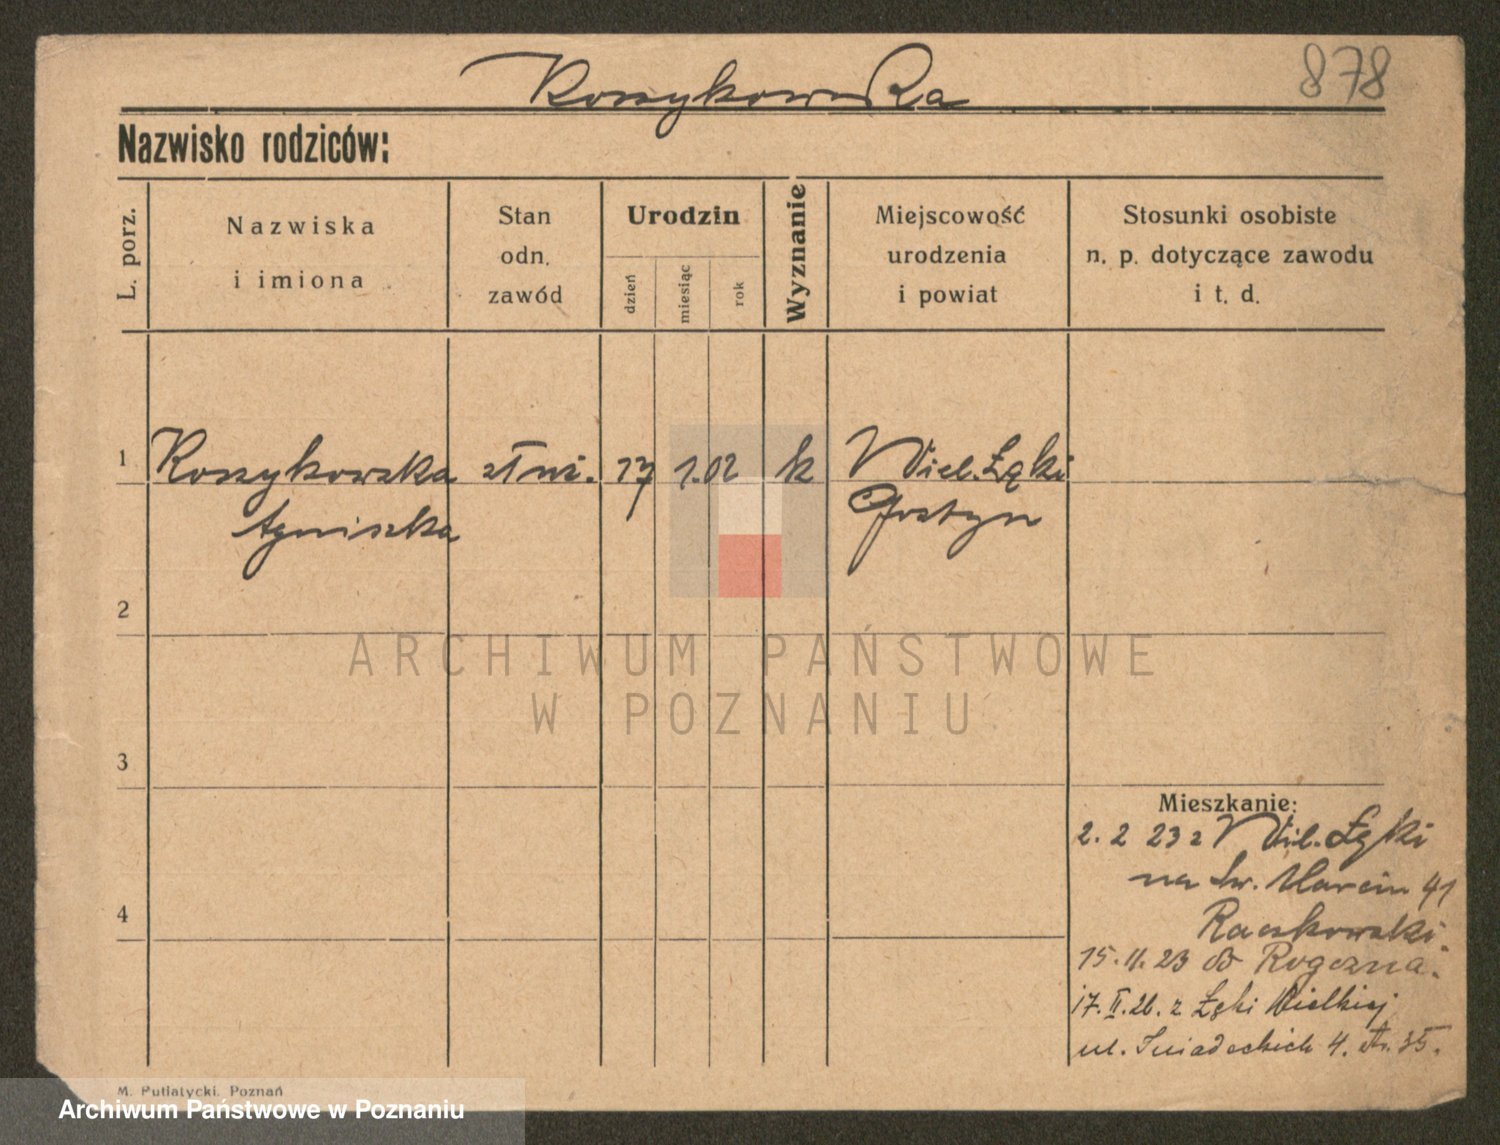 Koszykowska
878
Nazwisko rodziców:
L. porz.
Nazwiska
i imiona
Stan
odn.
zawód
Urodzin
dzień
miesiąc
rok
Wyznanie
Miejscowość
urodzenia
i powiat
Stosunki osobiste
n. p. dotyczące zawodu
i t. d.
1 Koszykowska 1.02 k Wiel. Łęki
Agniszka Gostyn
2
ARCHIWUM PAŃSTWOWE
W POZNANIU
3
Mieszkanie:
2. 2 23 z Wiel. Łęki
na Św. Marcin 41
Raczkowski.
4
15. 11. 23 do
17. II. 26. z Łęki Wielkiej
ul. Śniadeckich 4.
M. Putiatycki, Poznań
Archiwum Państwowe w Poznaniu